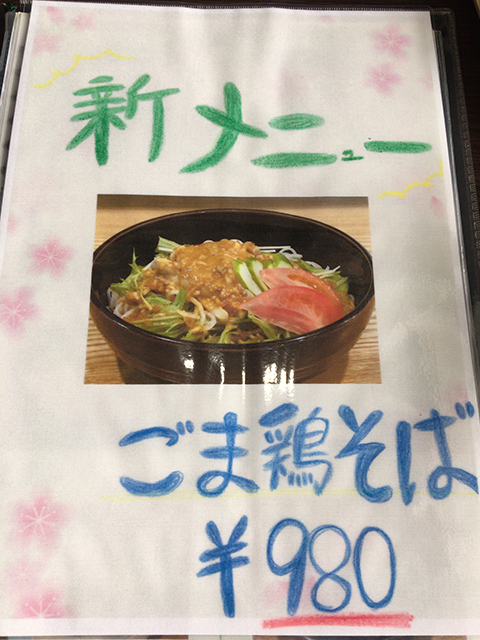 新メニュー
ごま鶏そば
¥980